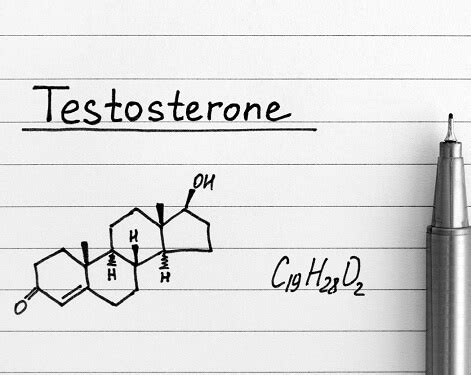 Testosterone
OH
H
H
H
O
C₁₉H₂₈O₂